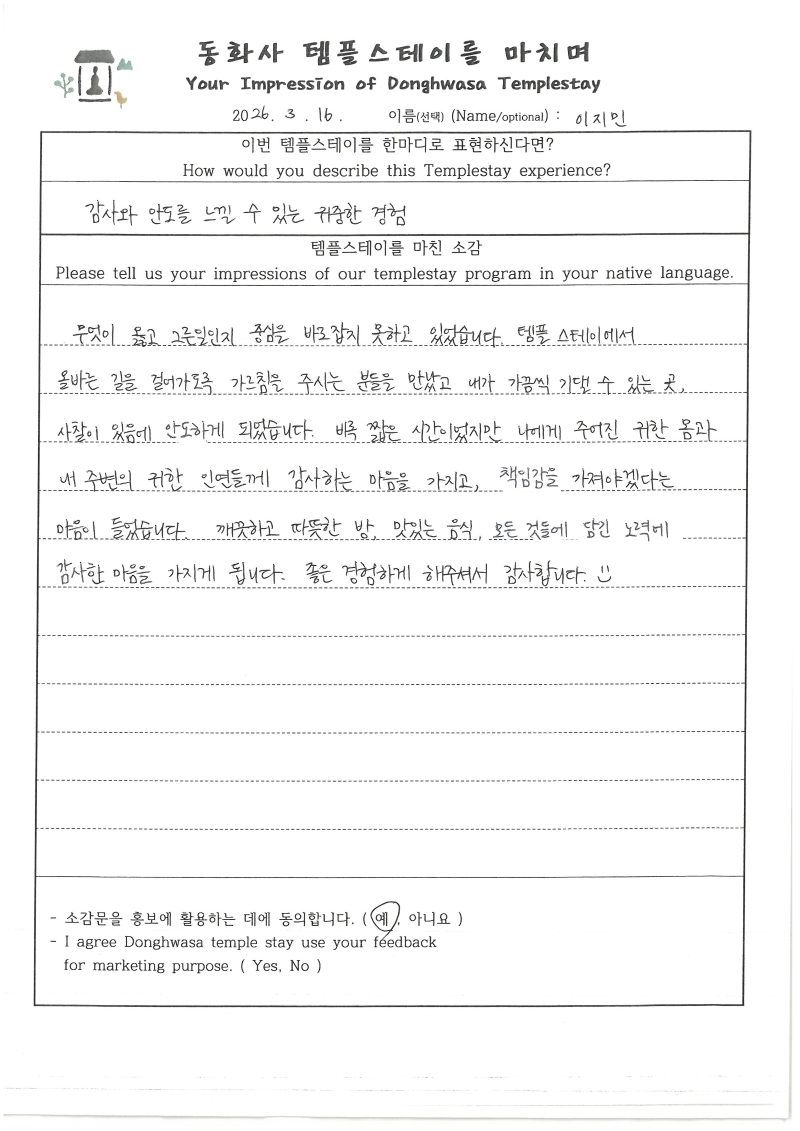 동화사 템플스테이를 마치며
Your Impression of Donghwasa Templestay
2026. 3. 16. 이름(선택) (Name/optional) : 이지민
이번 템플스테이를 한마디로 표현하신다면?
How would you describe this Templestay experience?
감사와 안도를 느낄 수 있는 귀중한 경험
템플스테이를 마친 소감
Please tell us your impressions of our templestay program in your native language.
무엇이 옳고 그른일인지 중심을 바로잡지 못하고 있었습니다. 템플 스테이에서
올바른 길을 걸어가도록 가르침을 주시는 분들을 만났고 내가 가끔씩 기댈 수 있는 곳,
사찰이 있음에 안도하게 되었습니다. 비록 짧은 시간이었지만 나에게 주어진 귀한 몸과
내 주변의 귀한 인연들께 감사하는 마음을 가지고, 책임감을 가져야겠다는
마음이 들었습니다. 깨끗하고 따뜻한 방, 맛있는 음식, 모든 것들에 담긴 노력에
감사한 마음을 가지게 됩니다. 좋은 경험하게 해주셔서 감사합니다. :)
- 소감문을 홍보에 활용하는 데에 동의합니다. ( 예 , 아니요 )
- I agree Donghwasa temple stay use your feedback
for marketing purpose. ( Yes, No )